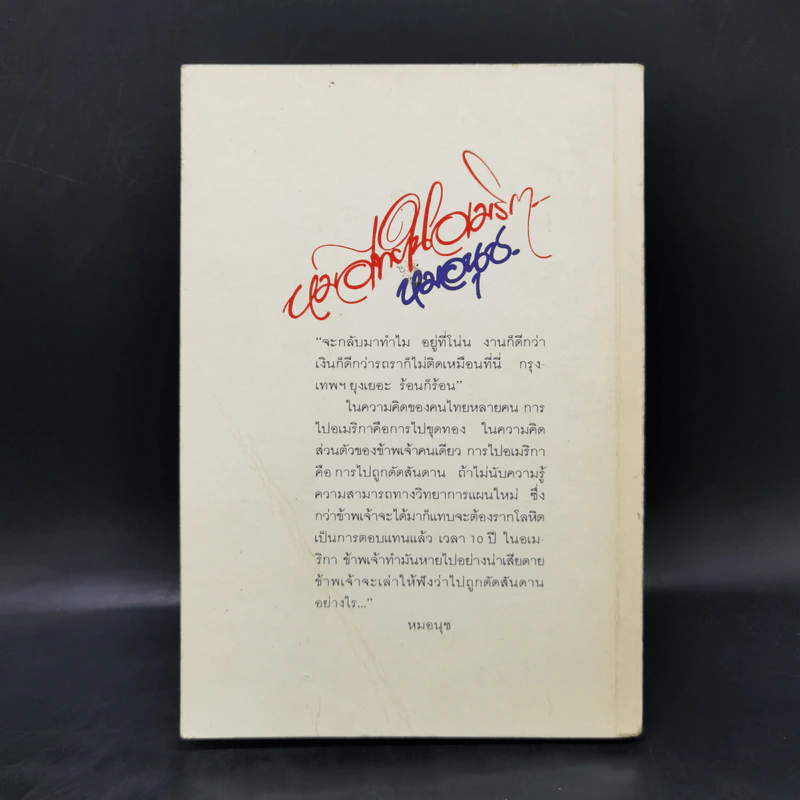 หมอไทยในอเมริกา
หมอนุช
“จะกลับมาทำไม อยู่ที่โน่น งานก็ดีกว่า
เงินก็ดีกว่ารถราก็ไม่ติดเหมือนที่นี่ กรุง-
เทพฯ ยุงเยอะ ร้อนก็ร้อน”
ในความคิดของคนไทยหลายคน การ
ไปอเมริกาคือการไปขุดทอง ในความคิด
ส่วนตัวของข้าพเจ้าคนเดียว การไปอเมริกา
คือ การไปถูกดัดสันดาน ถ้าไม่นับความรู้
ความสามารถทางวิทยาการแผนใหม่ ซึ่ง
กว่าข้าพเจ้าจะได้มาก็แทบจะต้องรากโลหิต
เป็นการตอบแทนแล้ว เวลา 10 ปี ในอเม-
ริกา ข้าพเจ้าทำมันหายไปอย่างน่าเสียดาย
ข้าพเจ้าจะเล่าให้ฟังว่าไปถูกดัดสันดาน
อย่างไร...”
หมอนุช